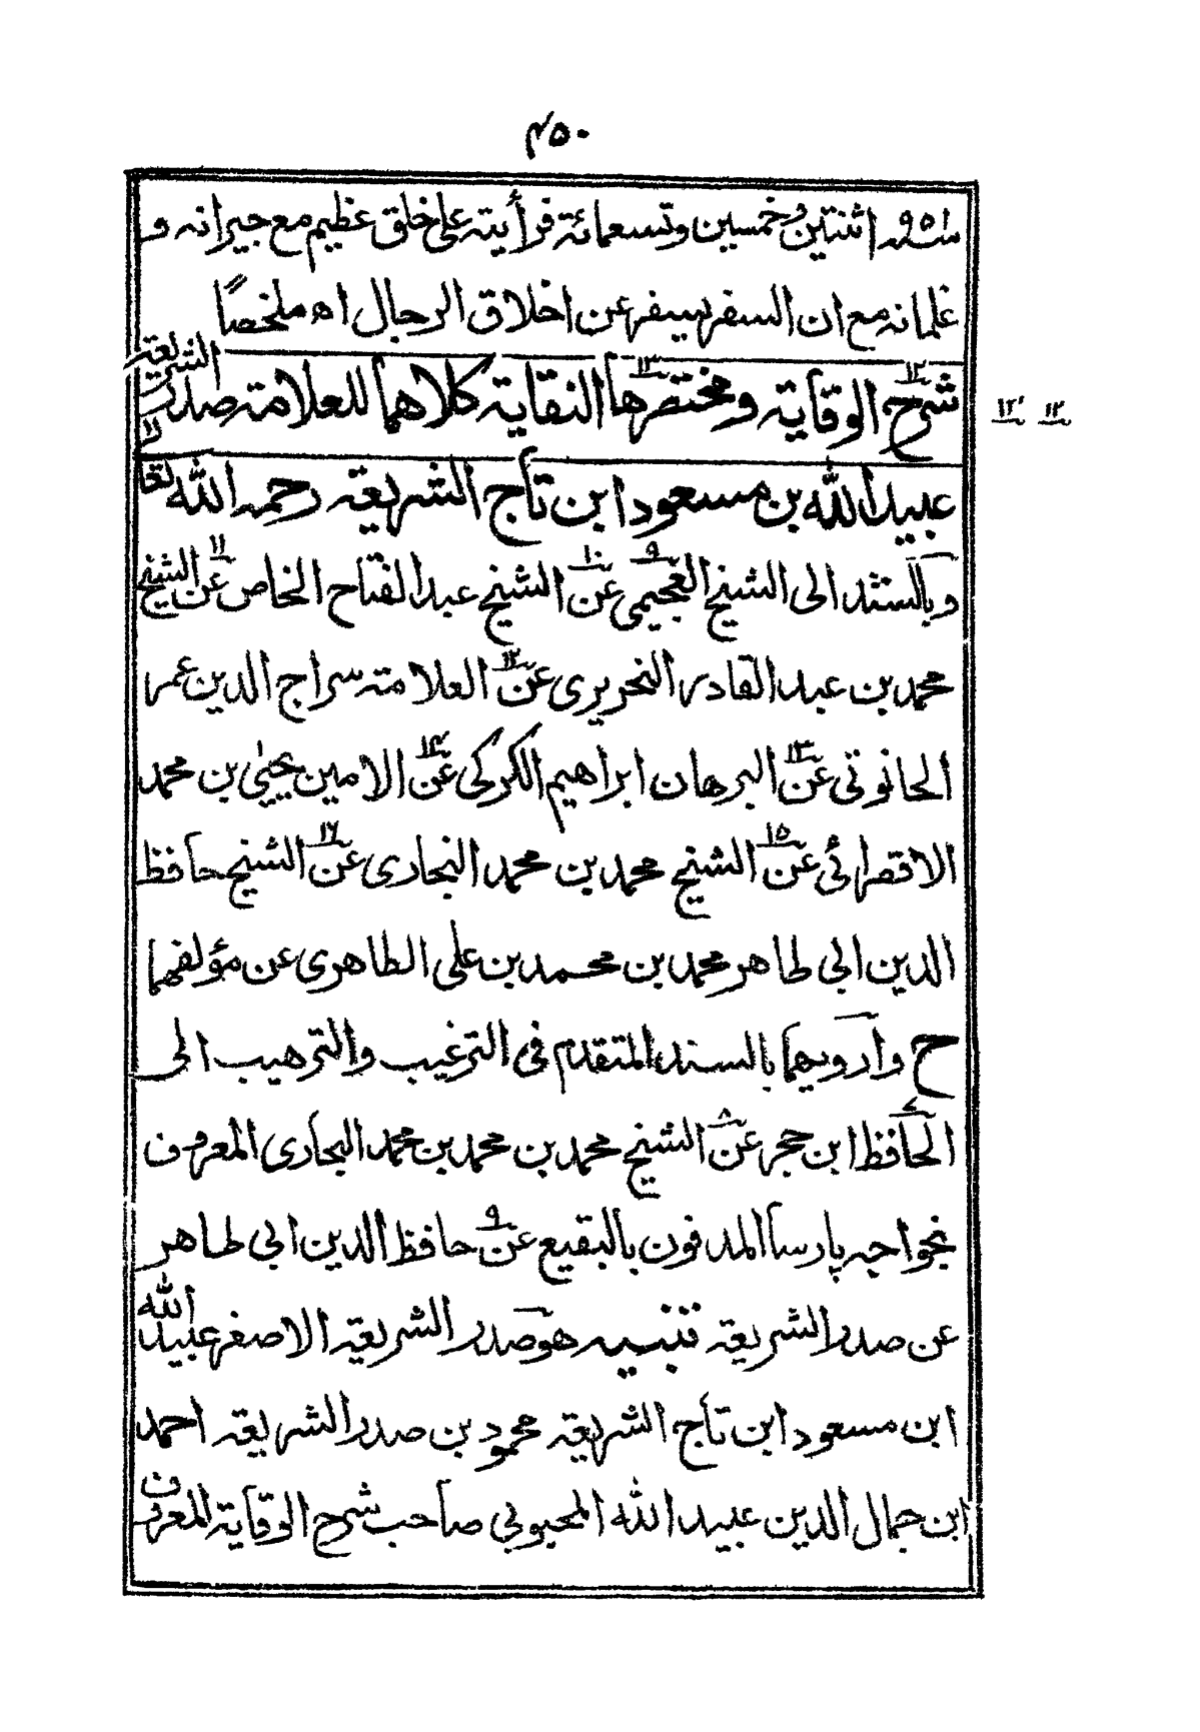 ٤٥٠
سنة ٩٥٢ اثنتين وخمسين وتسعمائة فرأيته على خلق عظيم مع جيرانه و
غلمانه مع ان السفر يسفر عن اخلاق الرجال اه ملخصًا
شرح الوقاية ومختصرها النقاية كلاهما للعلامة صدر الشريعة
١٢ ١٣
عبيد الله بن مسعود ابن تاج الشريعة رحمه الله تعا
وبالسند الى الشيخ العجيمي ٩ عن ١٠ الشيخ عبد الفتاح الخاص ١١ عن الشيخ
محمد بن عبد القادر النحريري ١٢ عن العلامة سراج الدين عمر
الحانوتي ١٣ عن البرهان ابراهيم الكركي ١٤ عن الامين يحيى بن محمد
الاقصرائي ١٥ عن الشيخ محمد بن محمد البخاري ١٦ عن الشيخ حافظ
الدين ابي طاهر محمد بن محمد بن علي الطاهري عن مؤلفهما
ح وارويهما بالسند المتقدم في الترغيب والترهيب الى
الحافظ ابن حجر ٨ عن الشيخ محمد بن محمد بن محمد البخاري المعروف
بخواجه پارسا المدفون بالبقيع ٩ عن حافظ الدين ابي طاهر
عن صدر الشريعة تنبيه هو صدر الشريعة الاصغر عبيد الله
ابن مسعود ابن تاج الشريعة محمود بن صدر الشريعة احمد
ابن جمال الدين عبيد الله المحبوبي صاحب شرح الوقاية المعروف